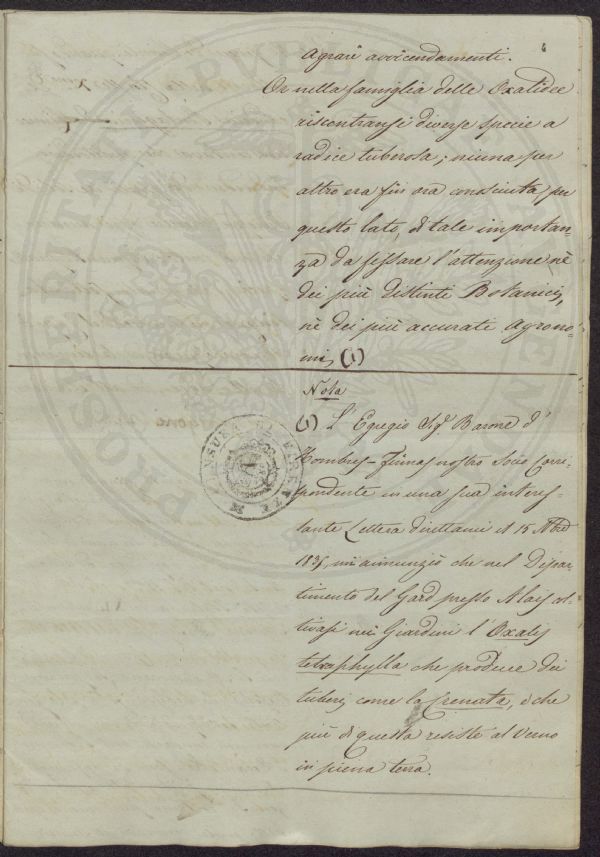 4
Agrari avvicendamenti.
Or nella famiglia delle Oxalidee
riscontransi diverse specie a
radice tuberosa; niuna per
altro era fin ora conosciuta per
questo lato, di tale importan-
za da fissare l'attenzione nè
dei più distinti Botanici,
nè dei più accurati Agrono-
mi, (1)
Nota
(1) L'Egregio Sigr Barone d'
Hombres-Firmas nostro Socio Corri-
spondente in una sua interes-
sante Lettera direttami il 15
mi annunziò che nel Dipar-
timento del Gard presso Alais col-
tivasi nei Giardini l'Oxalis
tetraphylla che produce dei
tuberi come la Crenata, e che
più di questa resiste al Verno
in piena terra.
PROSPERITATI PUBLICAE